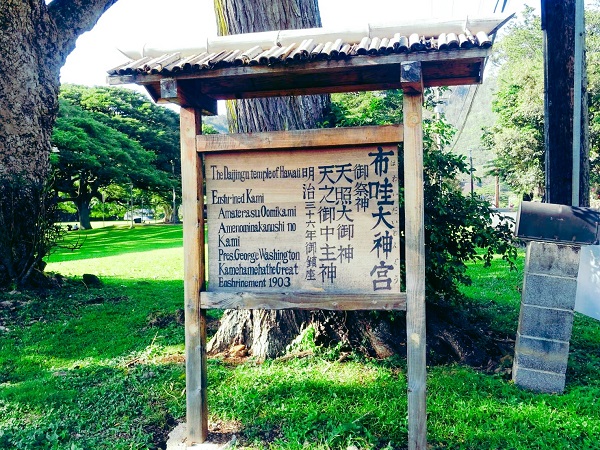 The Daijingu temple of Hawaii
Enshrined Kami
Amaterasu Oomikami
Amenominakanushi no
Kami
Pres. George Washington
Kamehameha the Great
Enshrinement 1903
布哇大神宮
御祭神
天照大御神
天之御中主神
明治三十六年御鎮座